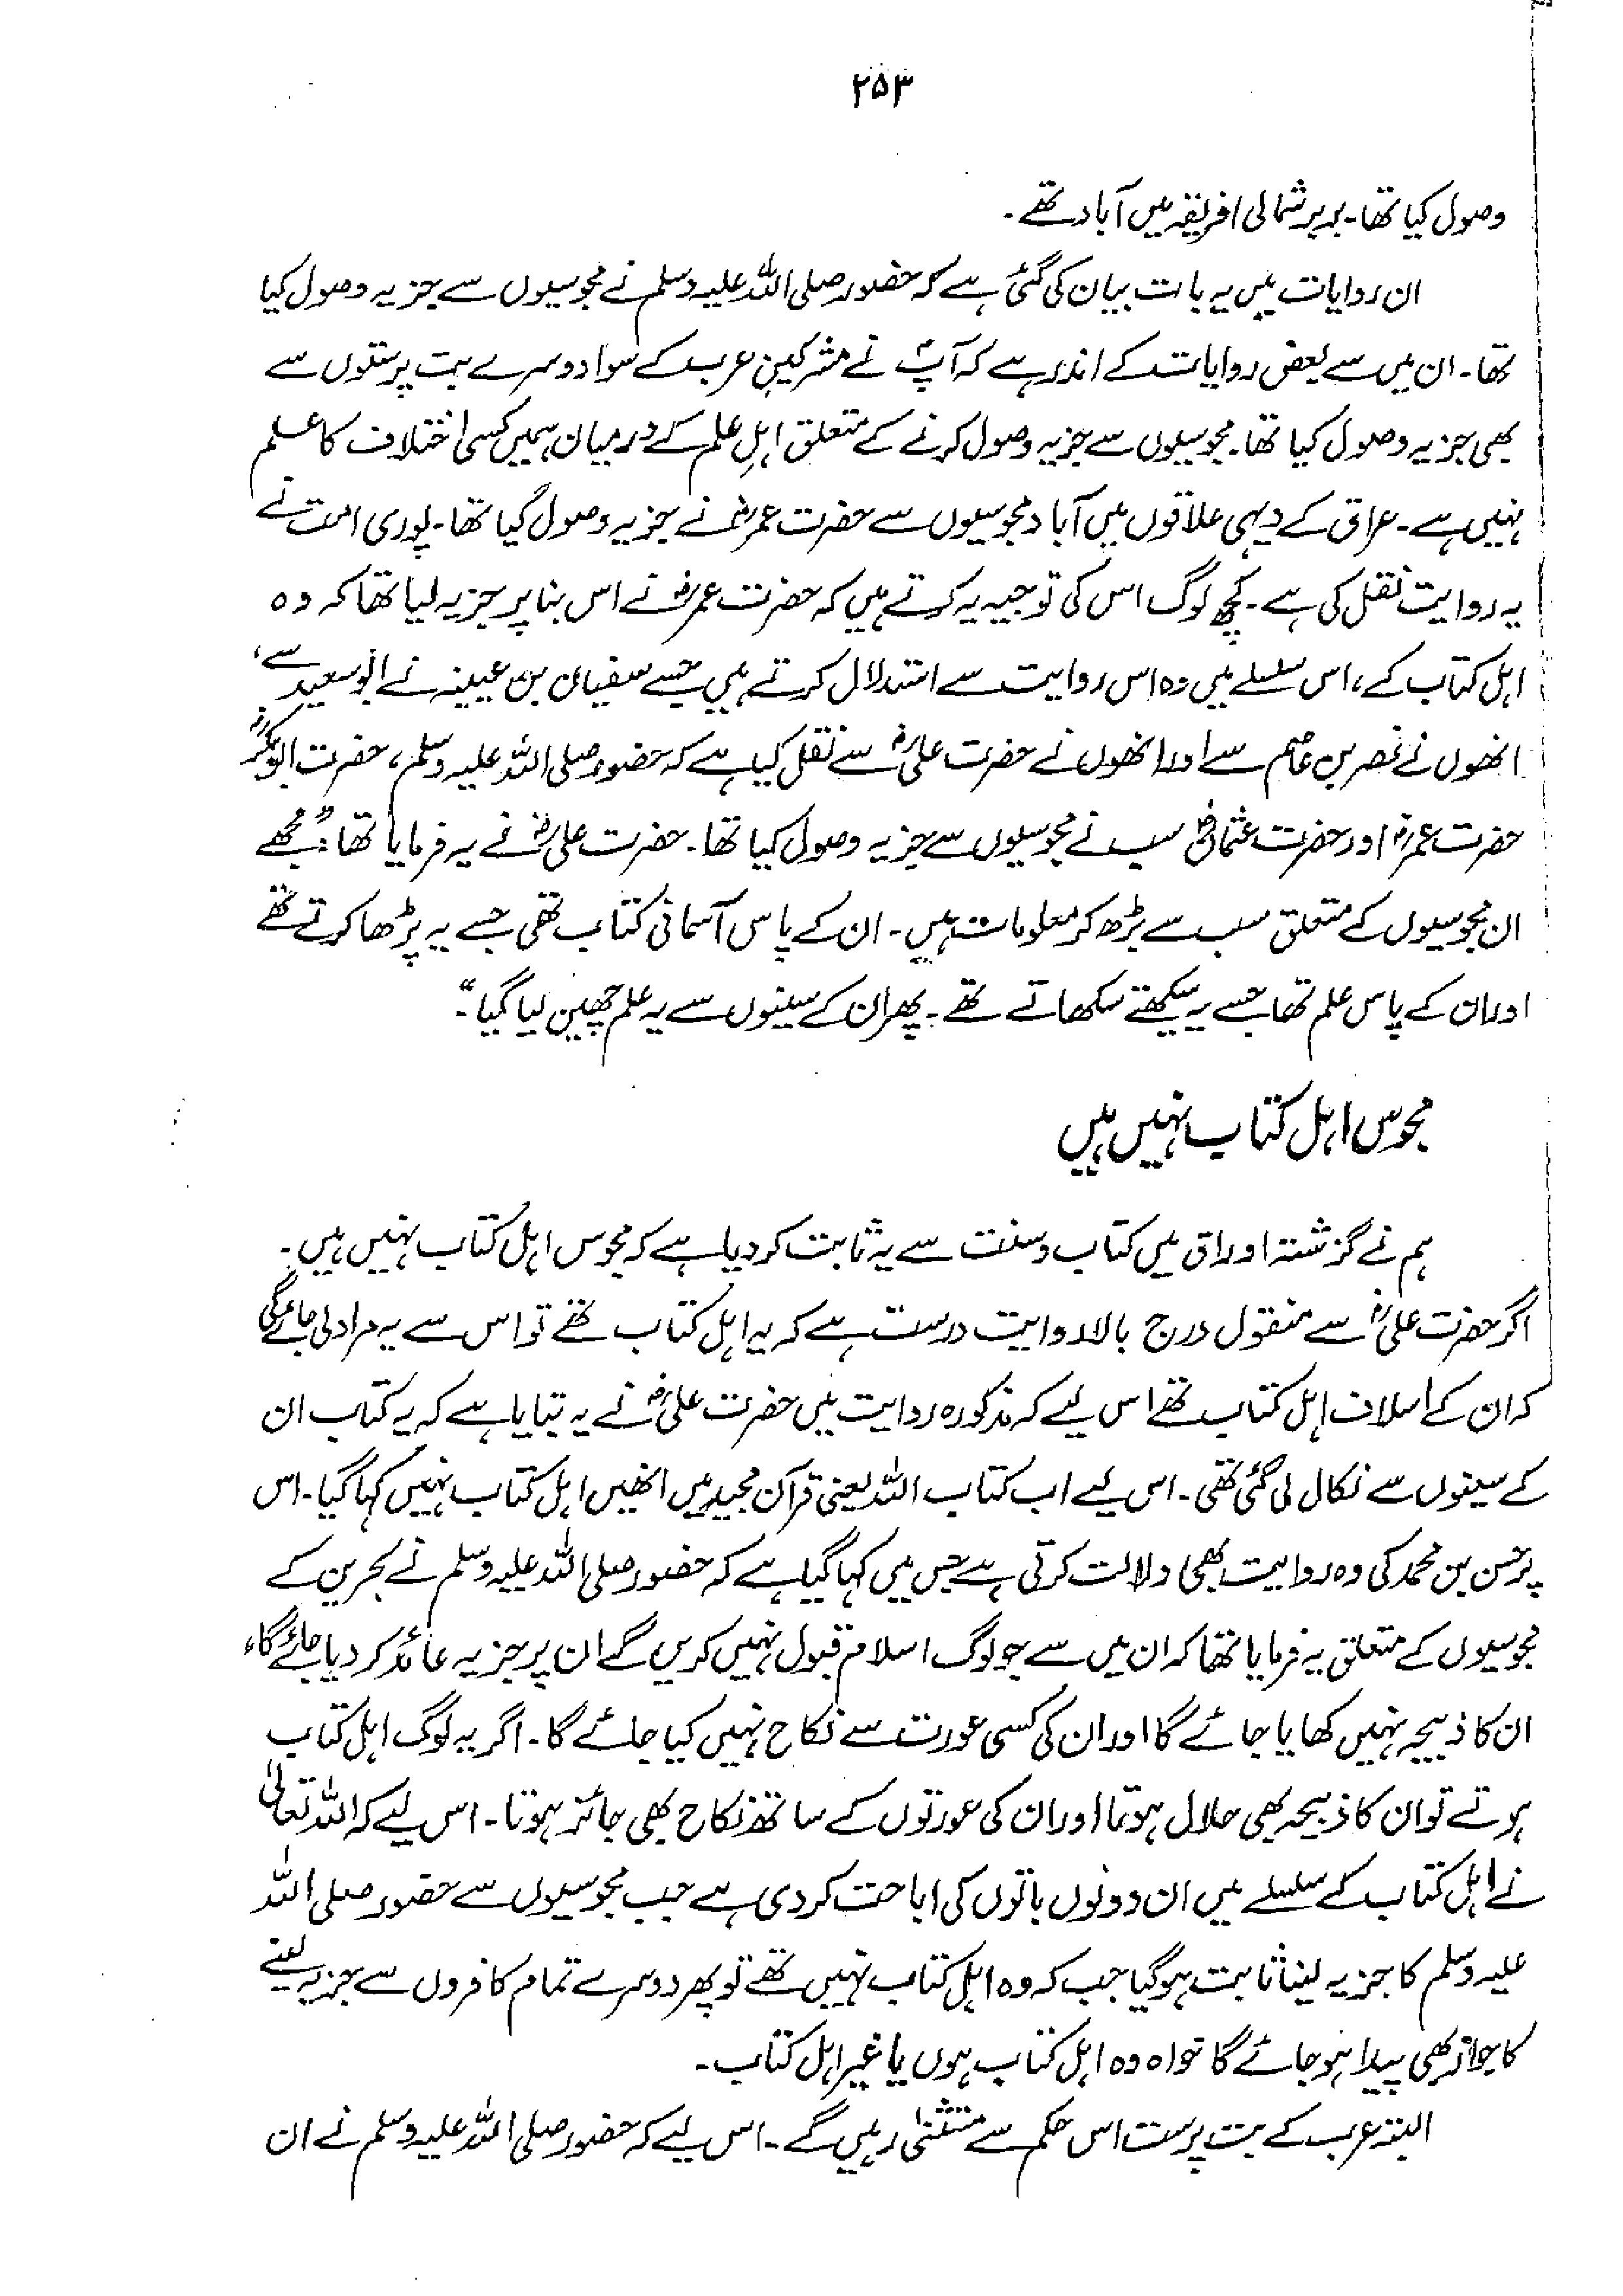 ۲۵۳
وصول کیا تھا۔ بربر شمالی افریقہ میں آباد تھے۔
ان روایات میں یہ بات بیان کی گئی ہے کہ حضور صلی اللہ علیہ وسلم نے مجوسیوں سے جزیہ وصول کیا
تھا۔ ان میں سے بعض روایات کے اندر ہے کہ آپؐ نے مشرکینِ عرب کے سوا دوسرے بت پرستوں سے
بھی جزیہ وصول کیا تھا۔ مجوسیوں سے جزیہ وصول کرنے کے متعلق اہلِ علم کے درمیان ہمیں کسی اختلاف کا علم
نہیں ہے۔ عراق کے دیہی علاقوں میں آباد مجوسیوں سے حضرت عمرؓ نے جزیہ وصول کیا تھا۔ پوری امت نے
یہ روایت نقل کی ہے۔ کچھ لوگ اس کی توجیہ یہ کرتے ہیں کہ حضرت عمرؓ نے اس بنا پر جزیہ لیا تھا کہ وہ
اہل کتاب کے، اس سلسلے میں وہ اس روایت سے استدلال کرتے ہیں جسے سفیان بن عیینہ نے ابوسعید سے،
انھوں نے نصر بن عاصم سے اور انھوں نے حضرت علیؓ سے نقل کیا ہے کہ حضور صلی اللہ علیہ وسلم، حضرت ابوبکرؓ
حضرت عمرؓ اور حضرت عثمانؓ سب نے مجوسیوں سے جزیہ وصول کیا تھا۔ حضرت علیؓ نے یہ فرمایا تھا: "مجھے
ان مجوسیوں کے متعلق سب سے بڑھ کر معلومات ہیں۔ ان کے پاس آسمانی کتاب تھی جسے یہ پڑھا کرتے تھے
اور ان کے پاس علم تھا جسے یہ سیکھتے سکھاتے تھے۔ پھر ان کے سینوں سے یہ علم چھین لیا گیا"۔
مجوس اہل کتاب نہیں ہیں
ہم نے گزشتہ اوراق میں کتاب و سنت سے یہ ثابت کر دیا ہے کہ مجوس اہل کتاب نہیں ہیں۔
اگر حضرت علیؓ سے منقول درج بالا روایت درست ہے کہ یہ اہل کتاب تھے تو اس سے یہ مراد لی جائے گی
کہ ان کے اسلاف اہل کتاب تھے اس لیے کہ مذکورہ روایت میں حضرت علیؓ نے یہ بتایا ہے کہ یہ کتاب ان
کے سینوں سے نکال لی گئی تھی۔ اس لیے اب کتاب اللہ یعنی قرآن مجید میں انھیں اہل کتاب نہیں کہا گیا۔ اس
پر حسن بن محمد کی وہ روایت بھی دلالت کرتی ہے جس میں کہا گیا ہے کہ حضور صلی اللہ علیہ وسلم نے بحرین کے
مجوسیوں کے متعلق یہ فرمایا تھا کہ ان میں سے جو لوگ اسلام قبول نہیں کریں گے ان پر جزیہ عائد کر دیا جائے گا،
ان کا ذبیحہ نہیں کھایا جائے گا اور ان کی کسی عورت سے نکاح نہیں کیا جائے گا۔ اگر یہ لوگ اہل کتاب
ہوتے تو ان کا ذبیحہ بھی حلال ہوتا اور ان کی عورتوں کے ساتھ نکاح بھی جائز ہوتا۔ اس لیے کہ اللہ تعالیٰ
نے اہل کتاب کے سلسلے میں ان دونوں باتوں کی اباحت کر دی ہے جب مجوسیوں سے حضور صلی اللہ
علیہ وسلم کا جزیہ لینا ثابت ہو گیا جب کہ وہ اہل کتاب نہیں تھے تو پھر دوسرے تمام کافروں سے جزیہ لینے
کا جواز بھی پیدا ہو جائے گا خواہ وہ اہل کتاب ہوں یا غیر اہل کتاب۔
البتہ عرب کے بت پرست اس حکم سے مستثنیٰ رہیں گے۔ اس لیے کہ حضور صلی اللہ علیہ وسلم نے ان